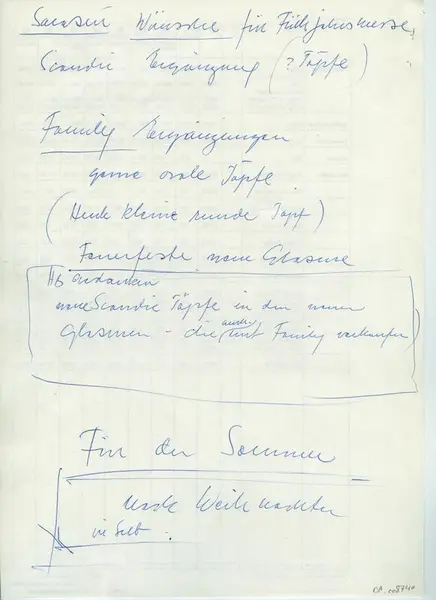 Wünsche für Frühjahrsmesse
Scandic Ergänzung (? Töpfe)
Family Ergänzungen
ganze ovale Töpfe
(Henk kleine runde Topf)
Feuerfeste neue Glasuren
HB Gedanken
neue Scandic Töpfe in den neuen
Glasuren - die mit Family verkaufen
Für den Sommer
nach Weihnachten
in Selb.